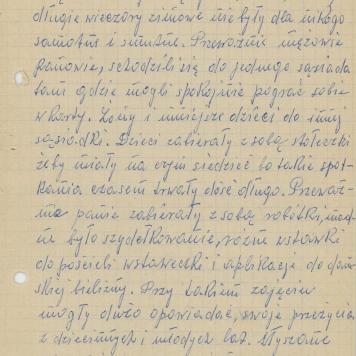 długie wieczory zimowe nie były dla nikogo
samotne i smutne. Przeważnie mężowie
panowie, schodzili się do jednego sąsiada
tam gdzie mogli spokojnie pograć sobie
w karty. Żony i mniejsze dzieci do innej
sąsiadki. Dzieci zabierały z sobą stołeczki
żeby miały na czym siedzieć bo takie spot-
kania czasem trwały dość długo. Przeważ-
nie panie zabierały z sobą robótki, mod-
ne było szydełkowanie, różne wstawki
do pościeli wstaweczki i aplikacje do dam
skiej bielizny. Przy takiem zajęciu
mogły dużo opowiadać, swoje przeżycia
z dziecinnych i młodych lat. Słyszane